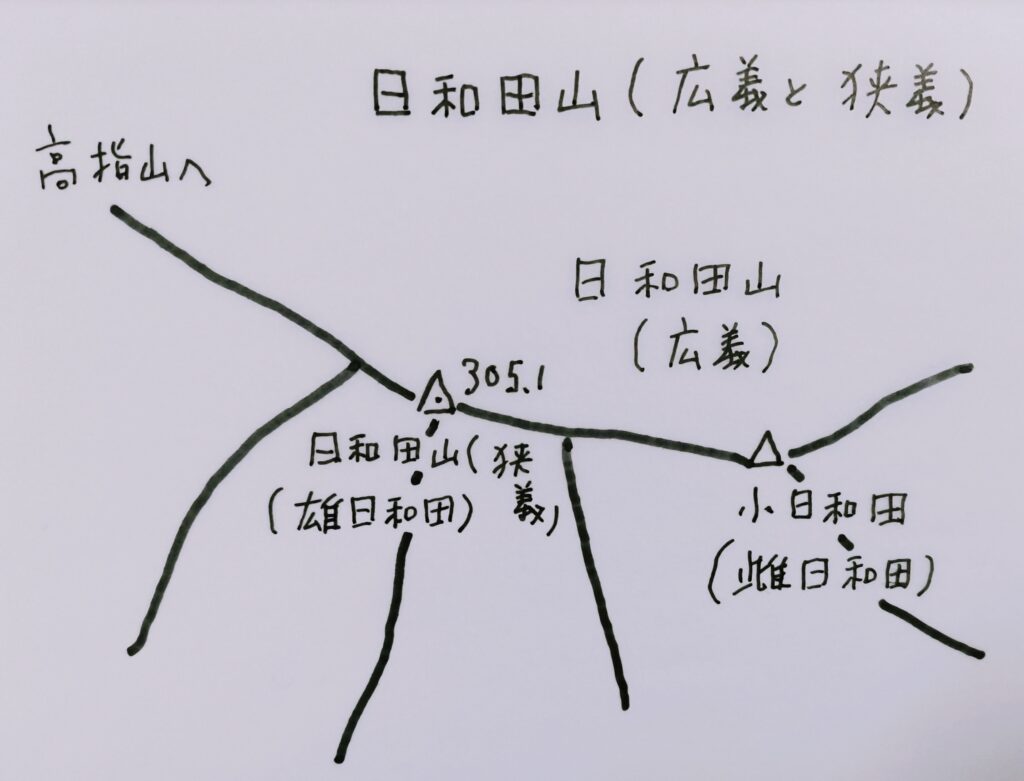 日和田山(広義と狭義)
高指山へ
日和田山
(広義)
305.1
日和田山(狭義)
(雄日和田)
小日和田
(雌日和田)